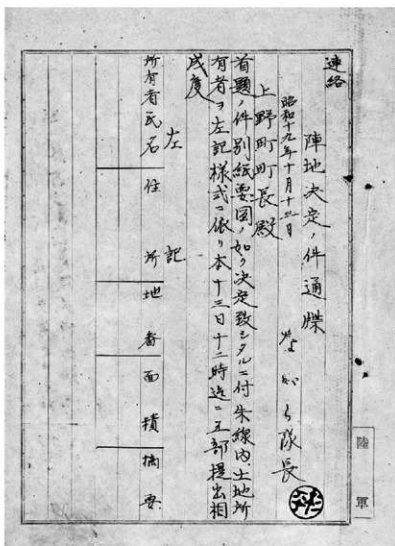 連絡
陣地決定ノ件通牒
昭和十九年十月十三日
隊長
上野町町長殿
首題ノ件別紙要図ノ如ク決定致シタルニ付朱線内土地所
有者ヲ左記様式ニ依リ本十三日十二時迄ニ五部提出相
成度
左記
所有者氏名 住所 地番 面積 摘要
陸軍